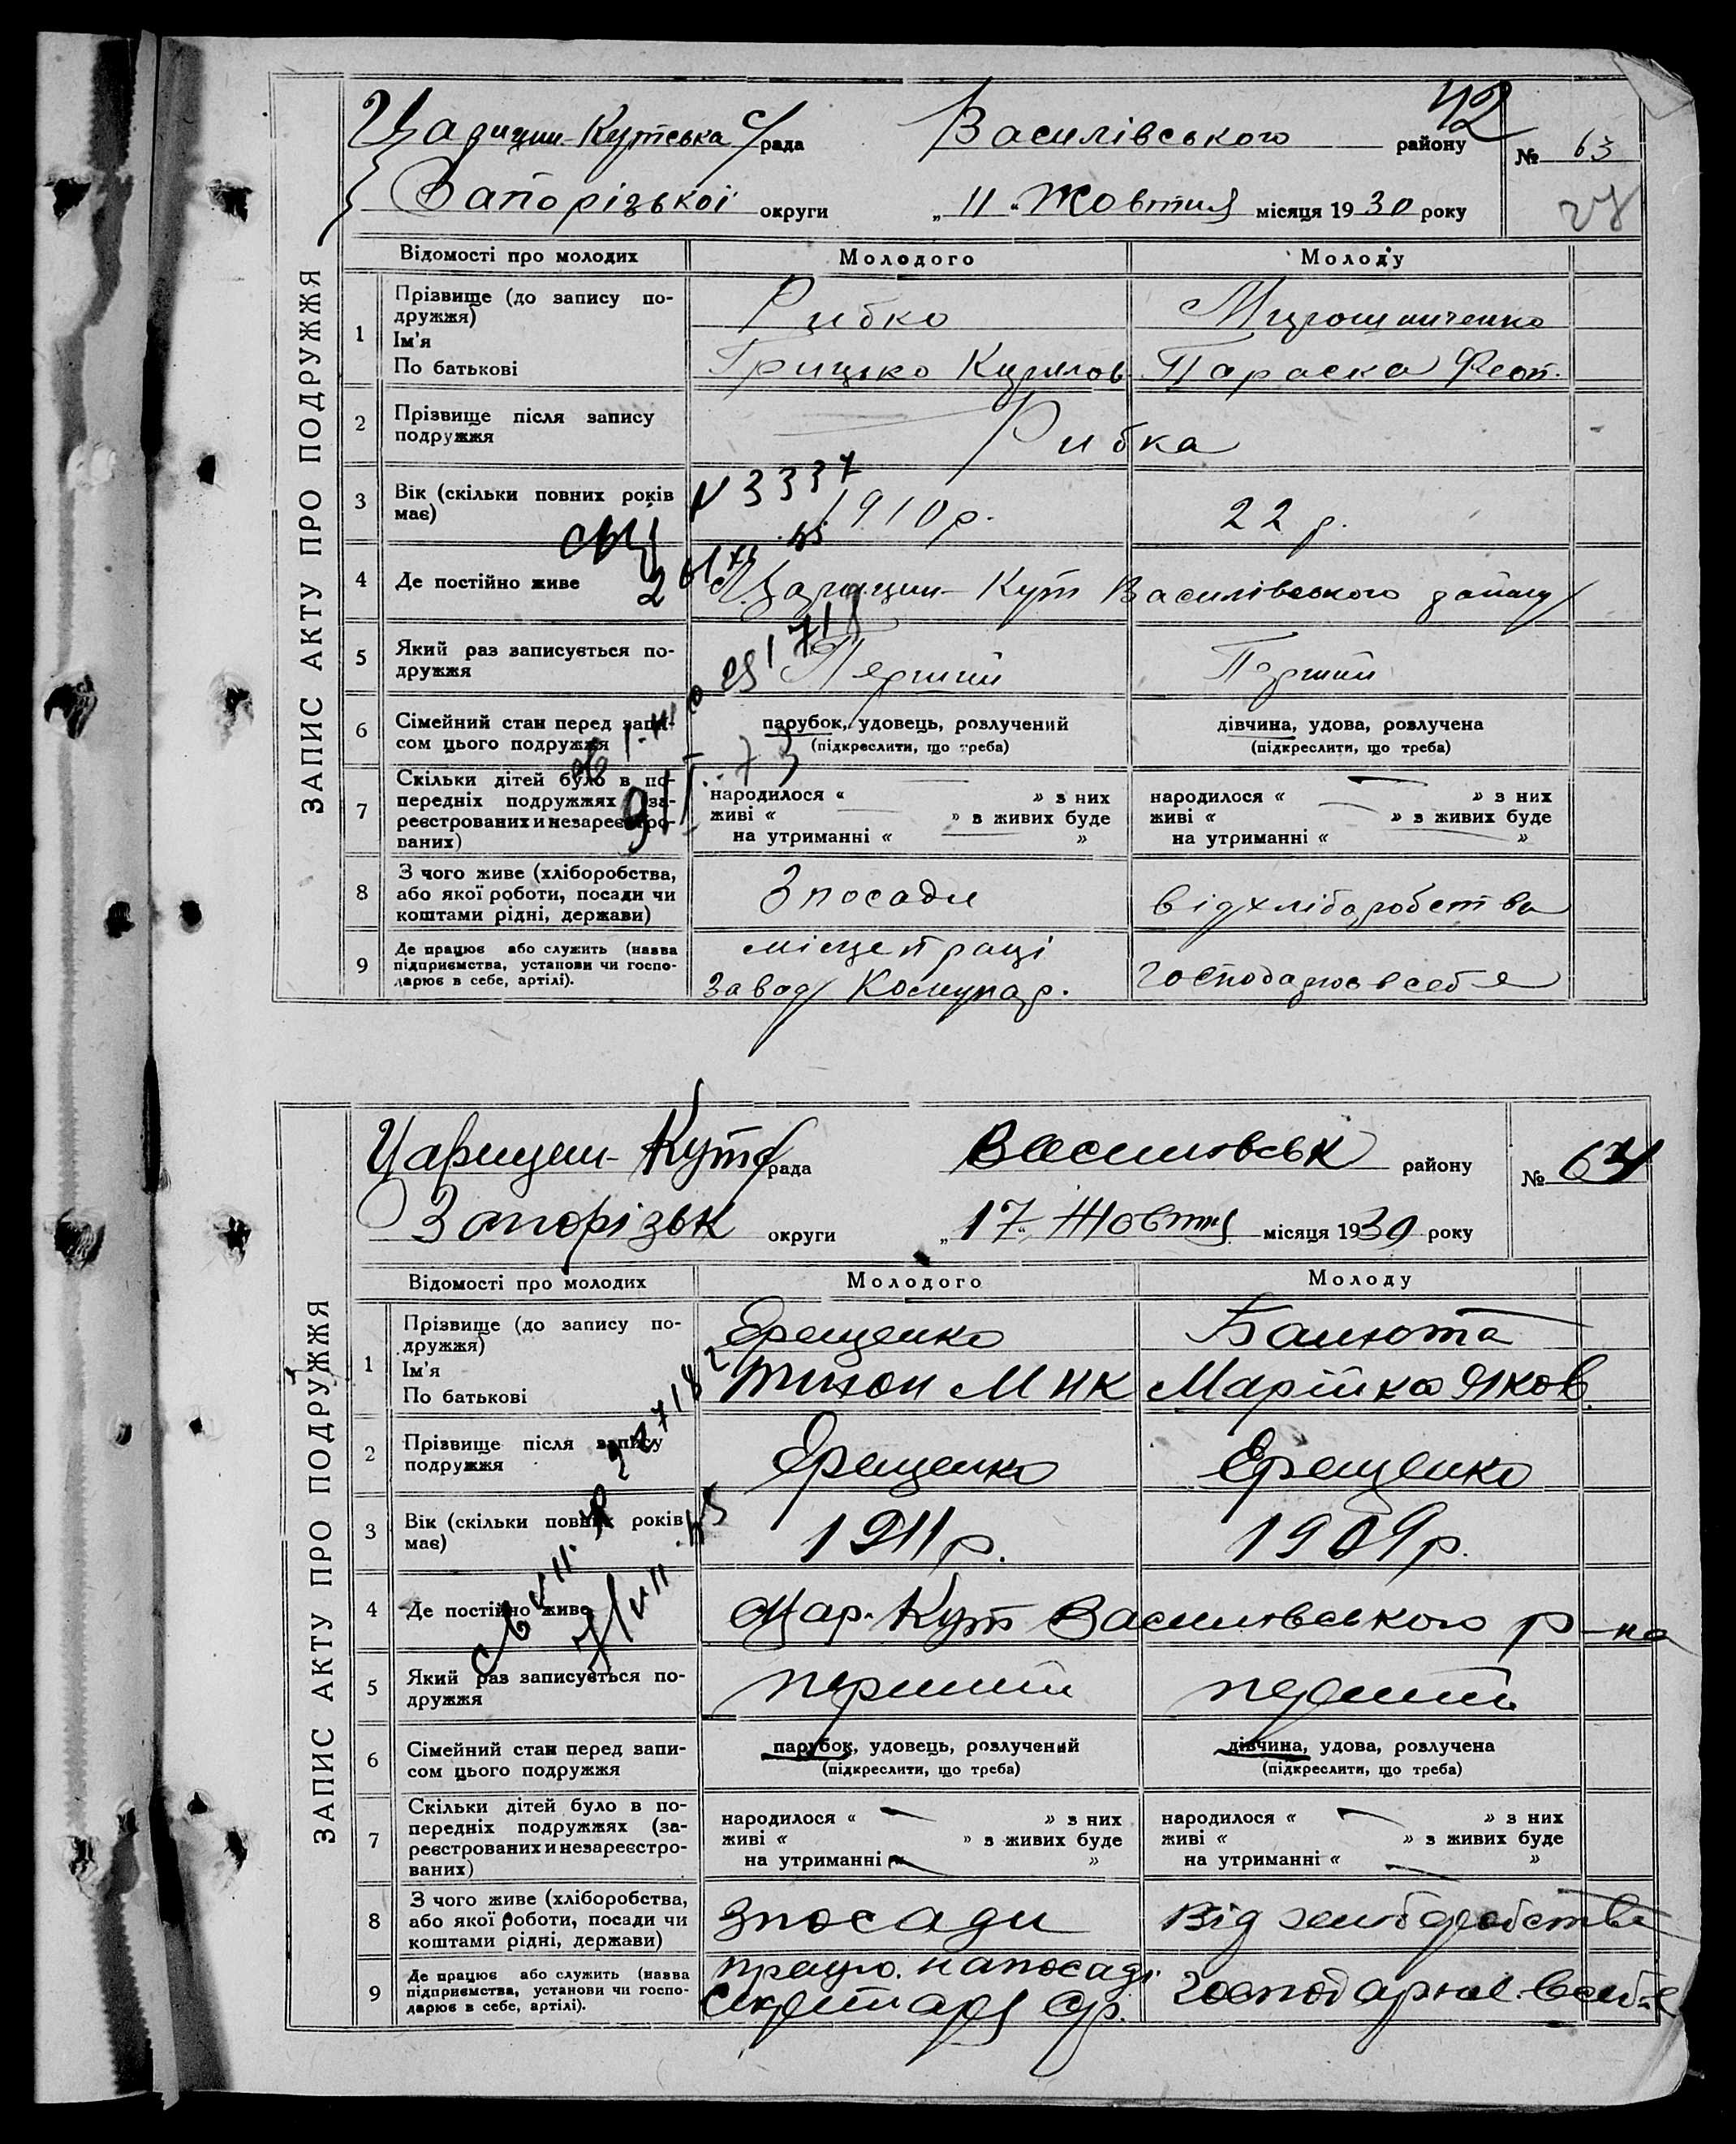 42
Царицин-Кутська с/рада Василівського району № 63
Запорізької округи „ 11 “ Жовтня місяця 1930 року
ЗАПИС АКТУ ПРО ПОДРУЖЖЯ
Відомості про молодих Молодого Молоду
1 Прізвище (до запису по-
дружжя) Рибко Мирошниченко
Ім'я
По батькові Грицько Кирилов Параска Феоп.
2 Прізвище після запису
подружжя Рибка
3 Вік (скільки повних років
має) 1910 р. 22 р.
N 3337
4 Де постійно живе Царицин-Кут Василівського району
5 Який раз записується по-
дружжя Перший Перший
6 Сімейний стан перед запи-
сом цього подружжя
парубок, удовець, розлучений дівчина, удова, розлучена
(підкреслити, що треба) (підкреслити, що треба)
7 Скільки дітей було в по-
передніх подружжях (за-
реєстрованих и незареєстро-
ваних)
народилося « » з них народилося « » з них
живі « » в живих буде живі « » в живих буде
на утриманні « » на утриманні « »
8 З чого живе (хліборобства,
або якої роботи, посади чи
коштами рідні, держави)
З посади від хліборобства
9 Де працює або служить (назва
підприємства, установи чи госпо-
дарює в себе, артілі).
місце праці
завод Комунар. господарює в себе
Царицин-Кут с/рада Василівськ району № 64
Запорізьк округи „ 17 “ Жовтня місяця 1930 року
ЗАПИС АКТУ ПРО ПОДРУЖЖЯ
Відомості про молодих Молодого Молоду
1 Прізвище (до запису по-
дружжя) Єрещенко Балюта
Ім'я
По батькові Тихон Мик Марійка Яков.
2 Прізвище після запису
подружжя Єрещенко Єрещенко
3 Вік (скільки повних років
має) 1911 р. 1909 р.
4 Де постійно живе Цар-Кут Василівського р-на
5 Який раз записується по-
дружжя перший перший
6 Сімейний стан перед запи-
сом цього подружжя
парубок, удовець, розлучений дівчина, удова, розлучена
(підкреслити, що треба) (підкреслити, що треба)
7 Скільки дітей було в по-
передніх подружжях (за-
реєстрованих и незареєстро-
ваних)
народилося « » з них народилося « » з них
живі « » в живих буде живі « » в живих буде
на утриманні « » на утриманні « »
8 З чого живе (хліборобства,
або якої роботи, посади чи
коштами рідні, держави)
З посади Від хліборобства
9 Де працює або служить (назва
підприємства, установи чи госпо-
дарює в себе, артілі).
працю. на посаді
секретаря с/р. господарює в себе